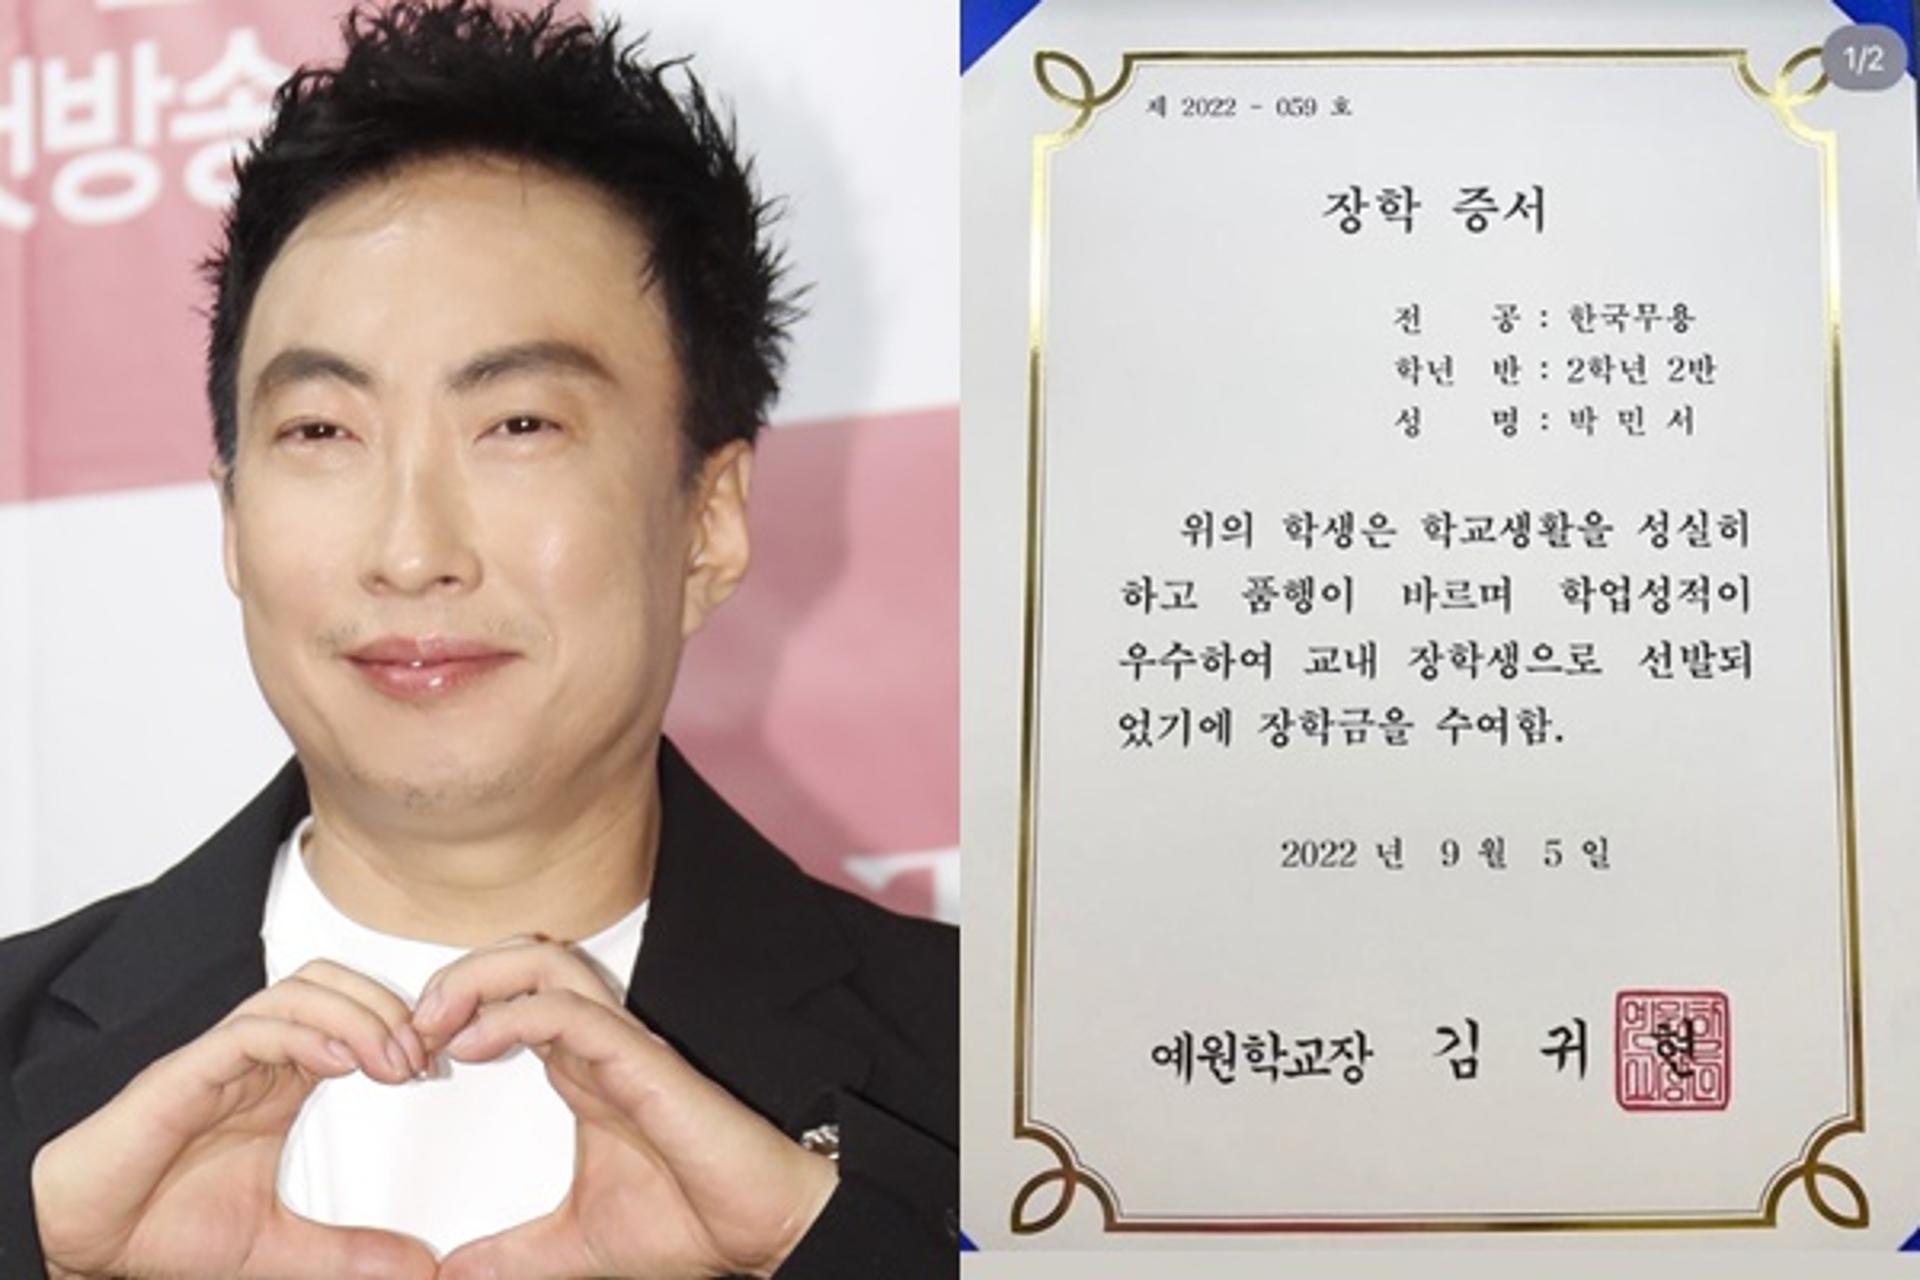 방송
1/2
제 2022 - 059 호
장학 증서
전 공 : 한국무용
학년 반 : 2학년 2반
성 명 : 박 민 서
위의 학생은 학교생활을 성실히
하고 품행이 바르며 학업성적이
우수하여 교내 장학생으로 선발되
었기에 장학금을 수여함.
2022 년 9 월 5 일
예원학교장 김 귀 현